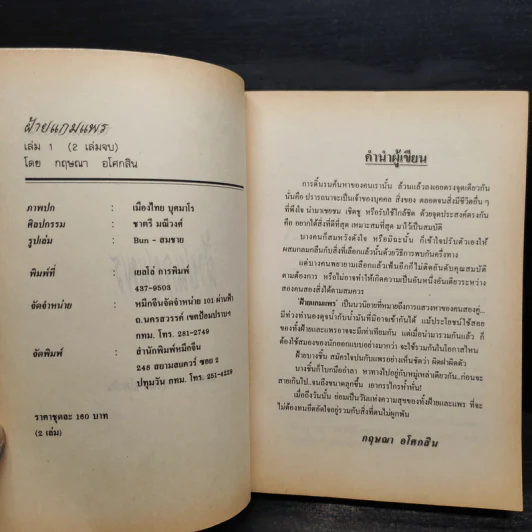 ฝ้ายแกมแพร
เล่ม 1 (2 เล่มจบ)
โดย กฤษณา อโศกสิน
ภาพปก : เมืองไทย บุศมาโร
ศิลปกรรม : ชาตรี มณีวงศ์
รูปเล่ม : Bun - สมชาย
พิมพ์ที่ : เยลโล่ การพิมพ์
437-9503
จัดจำหน่าย : หมึกจีนจัดจำหน่าย 101 ผ่านฟ้า
ถ.นครสวรรค์ เขตป้อมปราบฯ
กทม. โทร. 281-2749
จัดพิมพ์ : สำนักพิมพ์หมึกจีน
248 สยามสแควร์ ซอย 2
ปทุมวัน กทม. โทร. 251-4229
ราคาชุดละ 160 บาท
(2 เล่ม)
คำนำผู้เขียน
การดิ้นรนค้นหาของคนเรานั้น ล้วนแล้วลงเอยตรงจุดเดียวกัน
นั่นคือ ปรารถนาจะเป็นเจ้าของบุคคล สิ่งของ ตลอดจนสิ่งมีชีวิตอื่น ๆ
ที่พึงใจ นำมาเชยชม เชิดชู หรือรับใช้ใกล้ชิด ด้วยจุดประสงค์ตรงกัน
คือ อยากได้สิ่งที่ดีที่สุด เหมาะสมที่สุด มาไว้เป็นสมบัติ
บางคนก็สมหวังดังใจ หรือมิฉะนั้น ก็เข้าใจปรับตัวเองให้
ผสมกลมกลืนกับสิ่งที่เลือกแล้วนั้นด้วยวิธีการพบกันครึ่งทาง
แต่บางคนพยายามเลือกแล้วเฟ้นอีกก็ไม่ติดอันดับคุณสมบัติ
ตามต้องการ หรือไม่อาจทำให้เกิดความเป็นอันหนึ่งอันเดียวระหว่าง
สองคนสองสิ่งได้ตามสมควร
'ฝ้ายแกมแพร' เป็นนวนิยายที่หมายถึงการแสวงหาของคนสองคู่...
มีท่วงทำนองดุจน้ำกับน้ำมันที่มิอาจเข้ากันได้ แม้ประโยชน์ใช้สอย
ของทั้งฝ้ายและแพรอาจจะมีเท่าเทียมกัน แต่เมื่อนำมารวมกันแล้ว ก็
ต้องใช้สมองของนักออกแบบอย่างมากกว่า จะใช้รวมกันในโอกาสไหน
ฝ้ายบางชิ้น สมัครใจปนกับแพรอย่างเห็นชัดว่า ผิดฝาผิดตัว
บางชิ้นก็โบกมืออำลา หาทางไปอยู่กับหมู่เหล่าเดียวกัน..ก่อนจะ
สายเกินไป...จนถึงขนาดลุกขึ้น เอากรรไกรห้ำหั่น!
เมื่อถึงวันนั้น ย่อมเป็นวันแห่งความสุขของทั้งฝ้ายและแพร ที่จะ
ไม่ต้องทนอึดอัดใจอยู่ร่วมกับสิ่งที่ตนไม่ผูกพัน
กฤษณา อโศกสิน